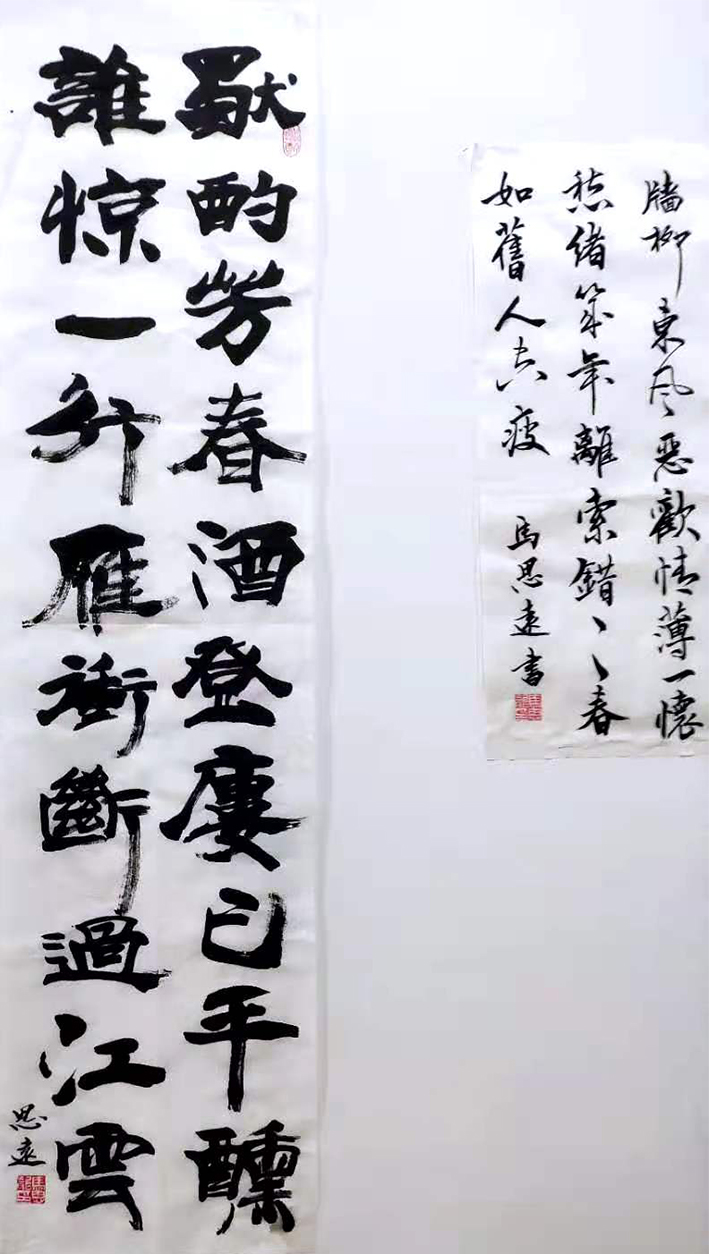 牆柳東風惡歡情薄一懷
愁緒幾年離索錯丶丶春
如舊人空瘦
馬思遠書
獨酌芳春酒登廔已半醺
誰惊一行雁衝斷過江雲
思遠